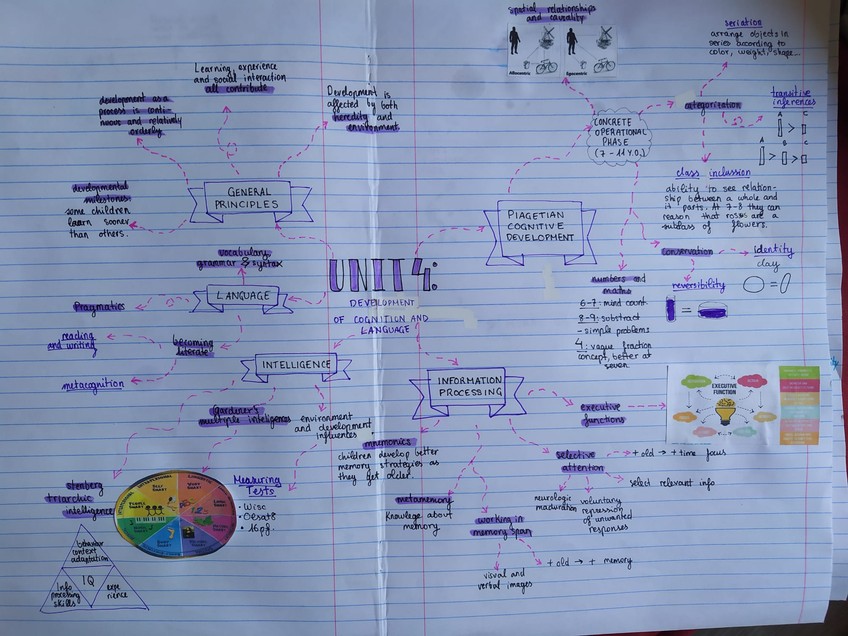 UNIT 4:
DEVELOPMENT
OF COGNITION AND
LANGUAGE
GENERAL
PRINCIPLES
development as a
process is conti-
nuous and relatively
orderly.
Learning, experience
and social interaction
all contribute
Development is
affected by both
heredity and
environment
developmental
milestones:
some children
learn sooner
than others.
LANGUAGE
vocabulary,
grammar & syntax
Pragmatics
becoming
literate
reading
and writing
metacognition
INTELLIGENCE
Gardener's
multiple inteligences
environment
and development
influences
stenberg
triarchic
intelligence
behavior
context
adaptation
IQ
Info
processing
skills
expe
rience
Measuring
Tests
• WISC
• 16pf.
PIAGETIAN
COGNITIVE
DEVELOPMENT
CONCRETE
OPERATIONAL
PHASE
(7 - 11 Y.O.)
spatial relationships
and causality
Allocentric
Egocentric
categorization
seriation
arrange objects in
series according to
color, weight, shape...
transitive
inferences
A
C
>
A
B
C
> >
class inclussion
ability to see relation-
ship between a whole and
it parts. At 7-8 they can
reason that roses are a
subclass of flowers.
conservation
identity
clay
=
reversibility
=
numbers and
maths
6-7: mind count
8-9: substract
- simple problems
4: vague fraction
concept, better at
seven
INFORMATION
PROCESSING
executive
functions
EXECUTIVE
FUNCTION
selective
attention
+ old → + time focus
select relevant info
neurologic
maduration
voluntary
repression
of unwanted
responses
mnemonics
children develop better
memory strategies as
they get older.
metamemory
Knowlege about
memory
working in
memory span
+ old → + memory
visual and
verbal images